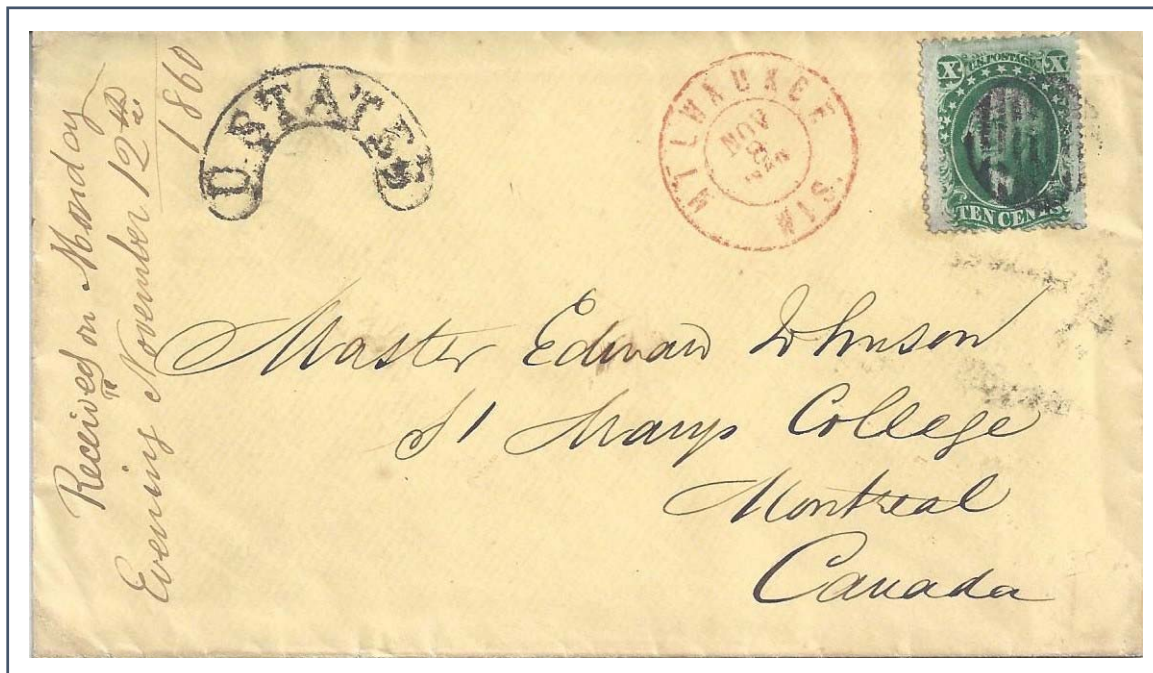 Received on Monday
Evening November 12th
1860
U. STATES
MILWAUKEE WIS.
NOV
X U.S. POSTAGE X
TEN CENTS
Master Edward Johnson
St Marys College
Montreal
Canada